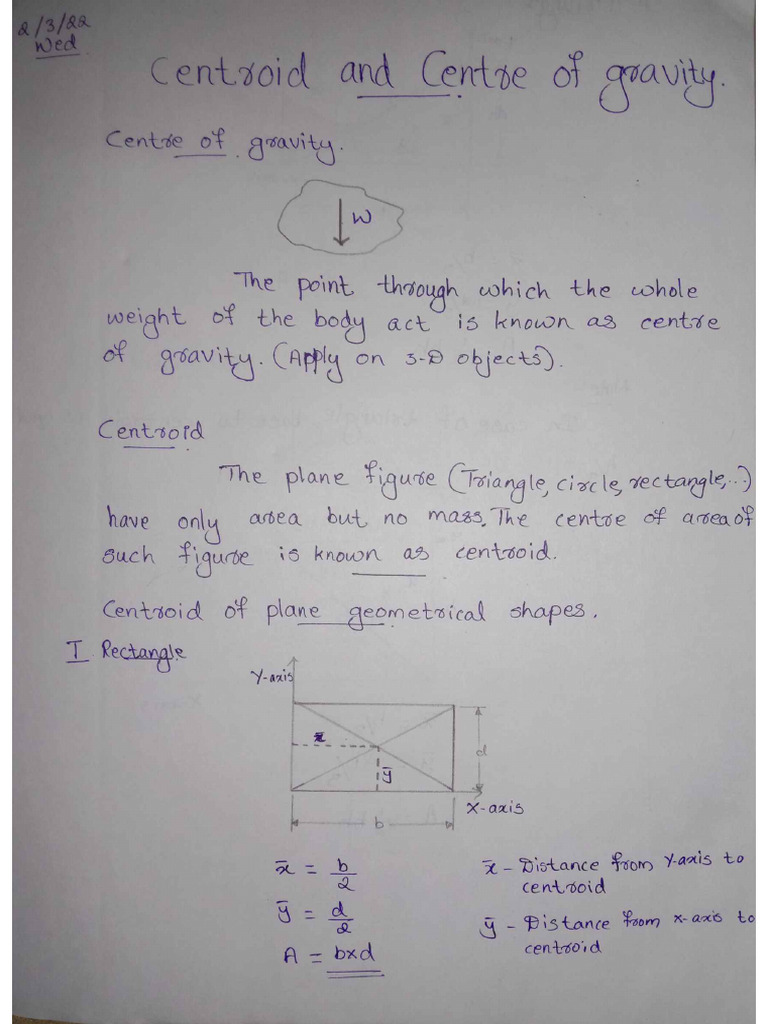 2/3/22
Wed
Centroid and Centre of gravity.
Centre of gravity.
W
The point through which the whole
weight of the body act is known as centre
of gravity. (Apply on 3-D objects).
Centroid
The plane figure (Triangle, circle, rectangle,...)
have only area but no mass. The centre of area of
such figure is known as centroid.
Centroid of plane geometrical shapes.
I Rectangle
Y-axis
x̄
d
ȳ
X-axis
b
x̄ = b/2
x̄ - Distance from Y-axis to
centroid
ȳ = d/2
ȳ - Distance from x-axis to
centroid
A = b×d